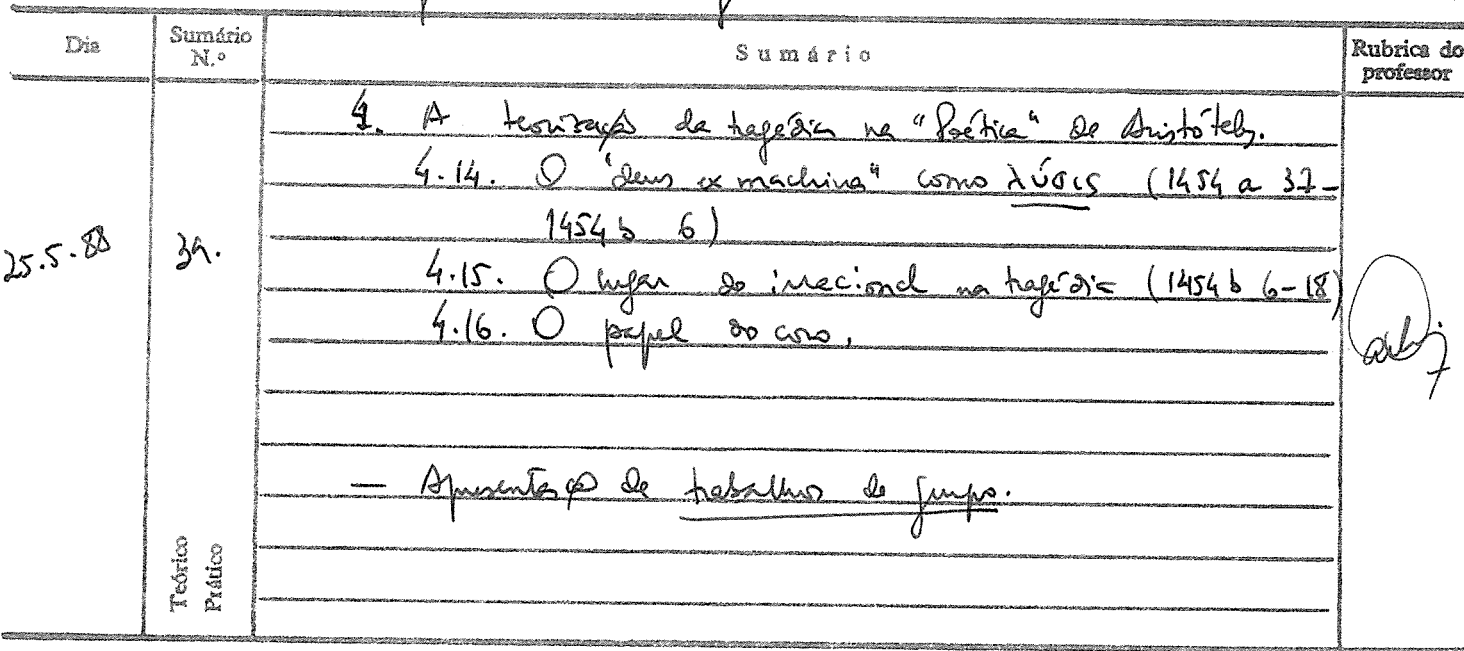 Dia
Sumário N.º
Sumário
Rubrica do professor
25.5.88
39.
4. A teorização da tragédia na "Poética" de Aristóteles.
4.14. O "deus ex machina" como λύσις (1454 a 37-
1454 b 6)
4.15. O lugar do irracional na tragédia (1454 b 6-18)
4.16. O papel do coro.
— Apresentação de trabalhos de grupo.
Teórico
Prático